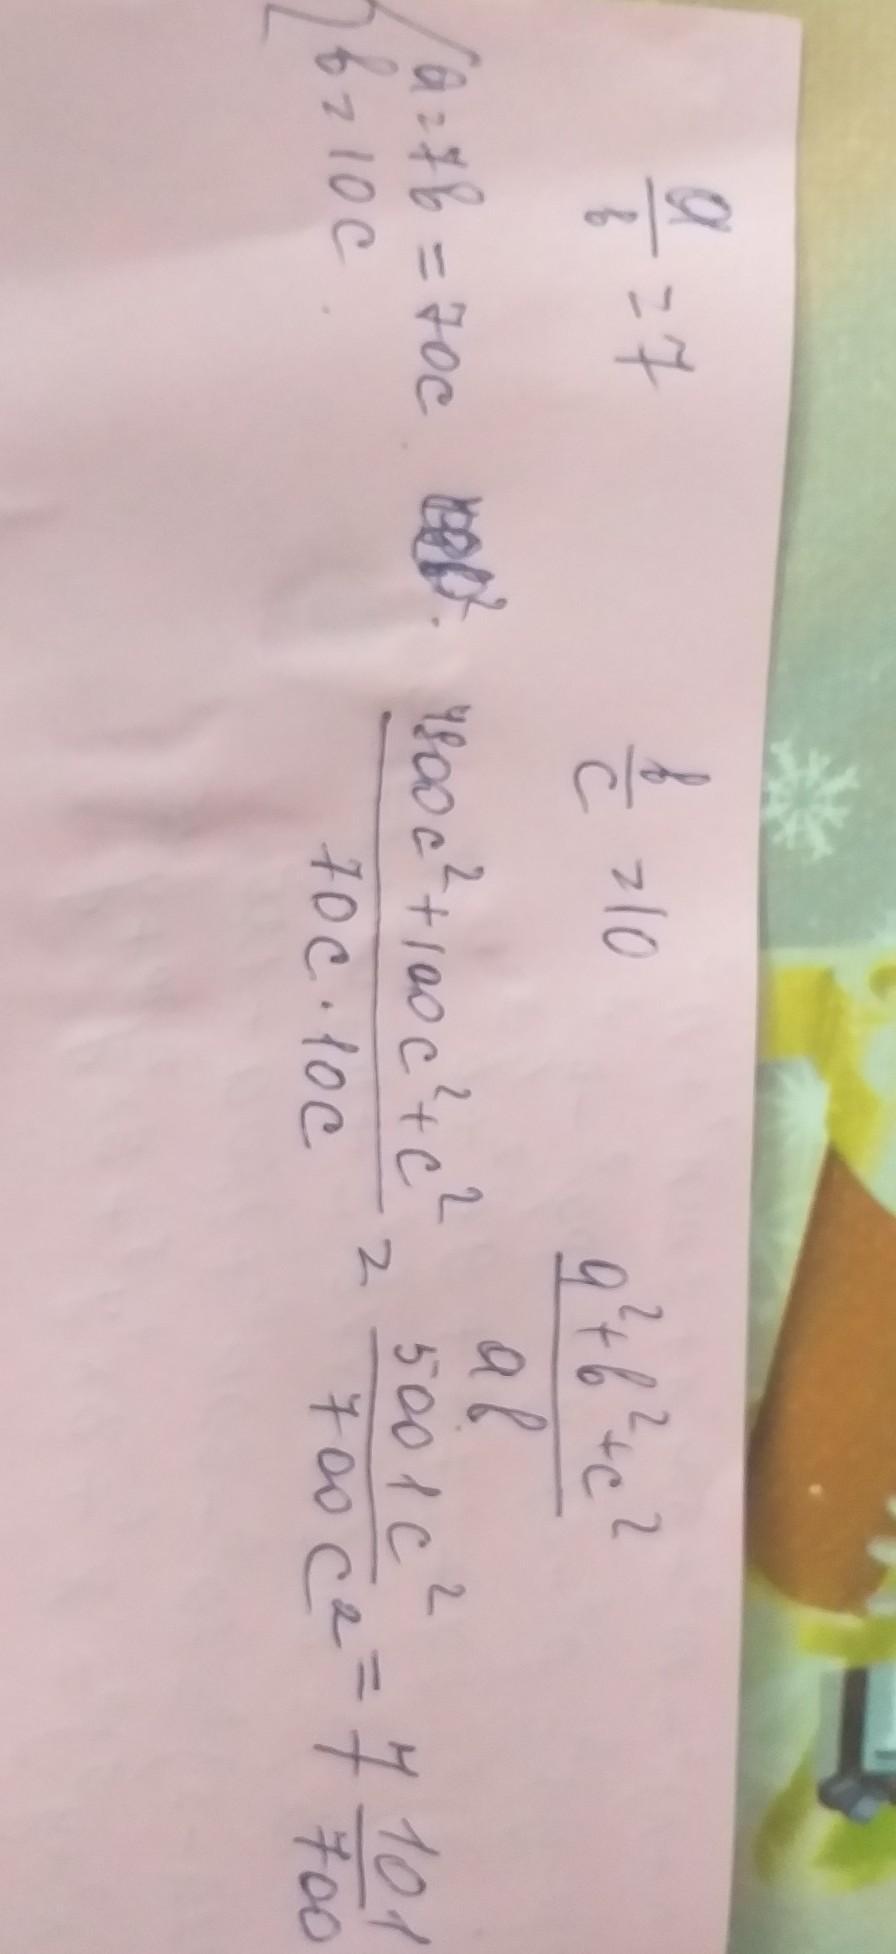 a/b = 7 b/c = 10 (a²+b²+c²)/(ab)
{ a = 7b = 70c
b = 10c
(4900c²+100c²+c²)/(70c·10c) = 5001c²/700c² = 7 101/700